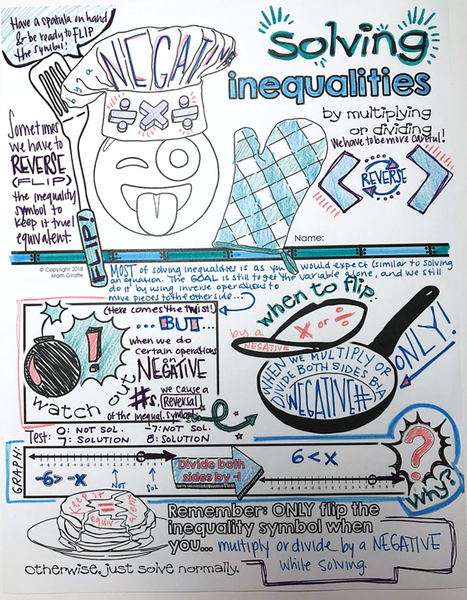 Have a spatula on hand
& be ready to FLIP
the symbol!
by a NEGATIVE
÷ × ÷
solving
inequalities
by multiplying
or dividing
We have to be more careful!
REVERSE
Sometimes
we have to
REVERSE
(FLIP)
the inequality
symbol to
keep it true/
equivalent.
FLIP!
Name:
© Copyright 2018
Math Giraffe
MOST of solving inequalities is as you would expect (similar to solving
an equation. The GOAL is still to get the variable alone, and we still
do it by using inverse operations to
move pieces to the other side...
(here comes the twist!)
...BUT...
when we do
certain operations
NEGATIVE
#s, we cause a
(reversal)
of the inequal. symbol
watch out!
when to flip:
by a
NEGATIVE
× or ÷
WHEN WE MULTIPLY OR
DIVIDE BOTH SIDES BY A
(NEGATIVE #)
ONLY!
Test: 0: NOT SOL. -7: NOT SOL.
7: SOLUTION 8: SOLUTION
GRAPH:
-6 > -x
NOT
SOL
Divide both
sides by -1
6 < x
?
Why?
keep it
=
equivalent
Remember: ONLY flip the
inequality symbol when
you... multiply or divide by a NEGATIVE
while solving.
otherwise, just solve normally.